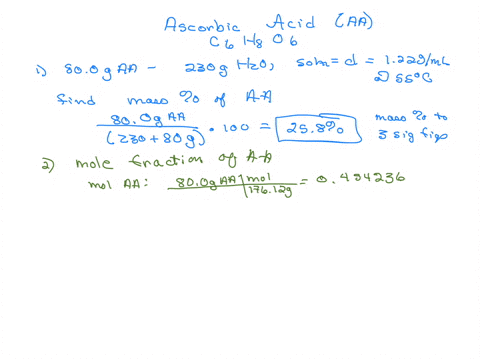 Ascorbic Acid (AA)
C6H8O6
1) 80.0g AA - 230g H2O, soln = d = 1.22g/mL
@ 55°C
find mass % of AA
80.0g AA
(230+80g) · 100 = 25.8% mass % to
3 sig figs
2) mole fraction of AA
mol AA: 80.0g AA | 1 mol
176.12g = 0.454236